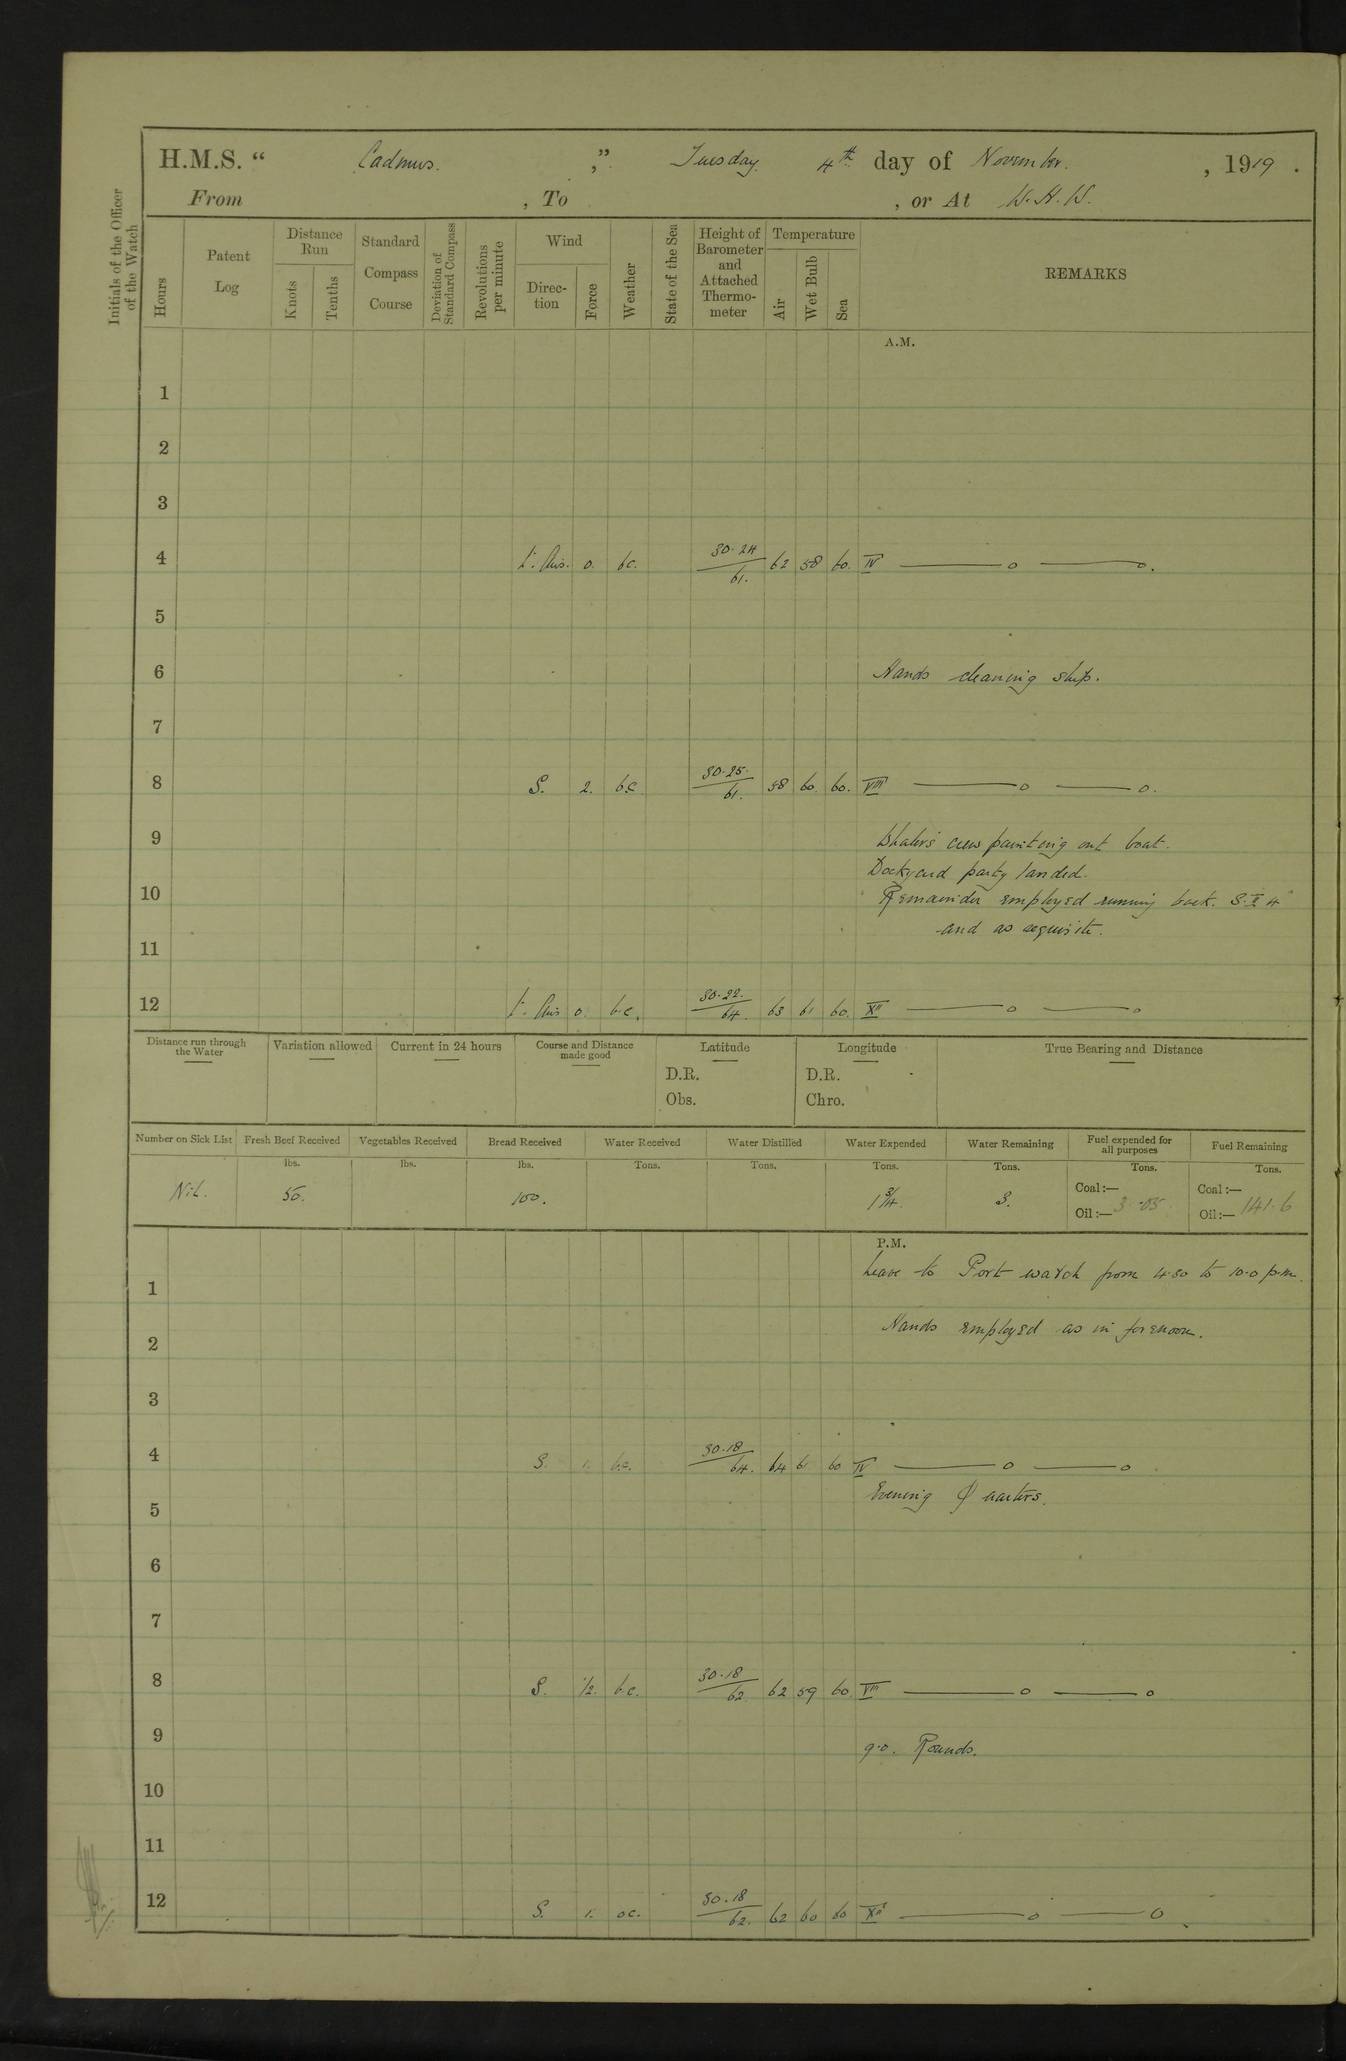 H.M.S. “ Cadmus. ,” Tuesday. 4th day of November. , 1919 .
From , To , or At W. H. W.
Initials of the Officer of the Watch
Hours
Patent Log
Distance Run
Knots
Tenths
Standard Compass Course
Deviation of Standard Compass
Revolutions per minute
Wind
Direction
Force
Weather
State of the Sea
Height of Barometer and Attached Thermometer
Temperature
Air
Wet Bulb
Sea
REMARKS
A.M.
1
2
3
4 Lt. Airs. 0. bc. 30.24 61. 62 58 60. IV
5
6 Hands cleaning ship.
7
8 S. 2. b.c. 30.25. 61. 58 60. 60. VIII
9 Whaler's crew painting out boat.
Dockyard party landed.
10 Remainder employed running back. S.
and as requisite.
11
12 Lt. Airs 0. b.c. 30.22. 64. 63 61 60. XII
Distance run through the Water
Variation allowed
Current in 24 hours
Course and Distance made good
Latitude
D.R.
Obs.
Longitude
D.R.
Chro.
True Bearing and Distance
Number on Sick List
Fresh Beef Received
Vegetables Received
Bread Received
Water Received
Water Distilled
Water Expended
Water Remaining
Fuel expended for all purposes
Fuel Remaining
lbs. lbs. lbs. Tons. Tons. Tons. Tons. Tons. Tons.
Nil. 50. 100. 1 3/4. 3. Coal :— Oil :— 3.05 Coal :— Oil :— 141.6
P.M.
Leave to Port watch from 4.30 to 10.0 p.m.
1
Hands employed as in forenoon.
2
3
4 S. 1. b.c. 30.18 64. 64 61 60 IV
Evening Quarters.
5
6
7
8 S. 1/2. b.c. 30.18 62 62 59 60 VIII
9 9.0. Rounds.
10
11
12 S. 1. oc. 30.18 62. 62 60 60 XII